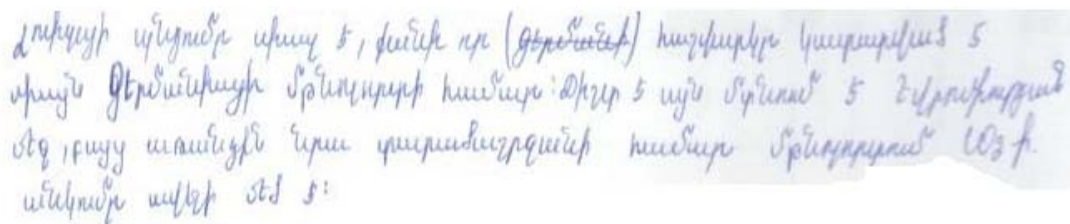 Հուլիայի պնդումը սխալ է, քանի որ (գերմանի) հաշվարկը կատարված է
միայն Գերմանիայի մթնոլորտի համար: Ճիշտ է այն մտնում է Եվրոմիության
մեջ, բայց առանձին նրա տարածաշրջանի համար մթնոլորտում CO₂ ի
անկումը ավելի մեծ է: